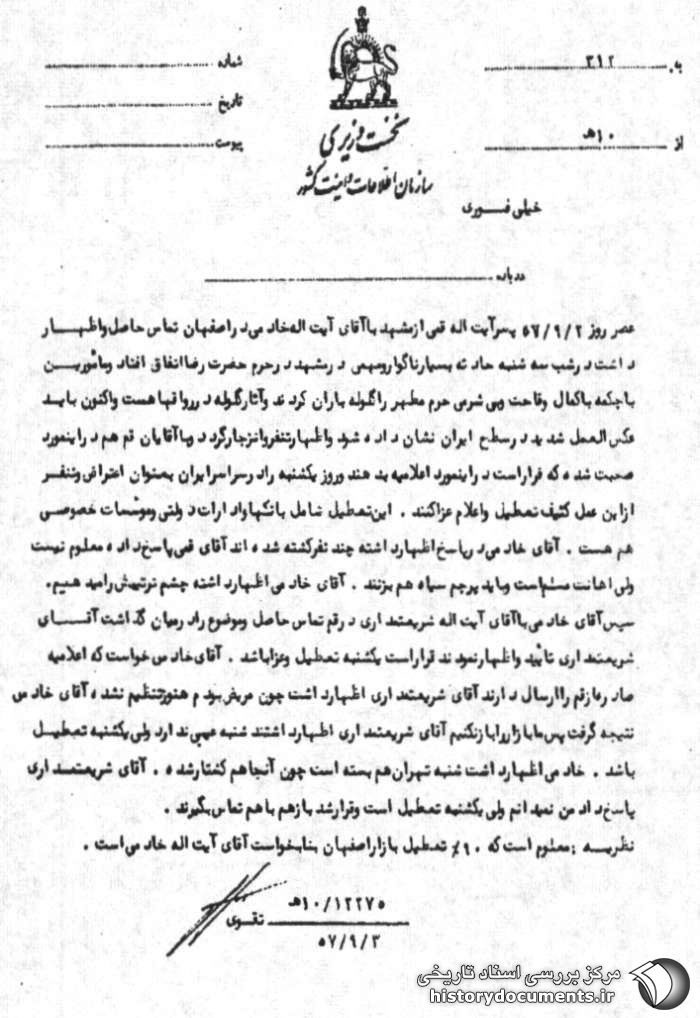 به ۳۱۲
از ۱۰هـ
نخست وزیری
سازمان اطلاعات و امنیت کشور
شماره
تاریخ
پیوست
خیلی فوری
درباره
عصر روز ۵۷/۹/۲ پسر آیت اله قمی از مشهد با آقای آیت اله خادمی در اصفهان تماس حاصل و اظهار
داشت در شب سه شنبه حادثه بسیار ناگوار و مهمی در مشهد در حرم حضرت رضا اتفاق افتاد و مأمورین
با چکمه با کمال وقاحت وبی شرمی حرم مطهر را گلوله باران کردند و آثار گلوله در رواقها هست واکنون باید
عکس العمل شدید در سطح ایران نشان داده شود و اظهار تنفر و انزجار گردد و با آقایان قم هم در اینمورد
صحبت شده که قرار است در اینمورد اعلامیه بدهند و روز یکشنبه را در سراسر ایران بعنوان اعتراض و تنفر
از این عمل کثیف تعطیل و اعلام عزا کنند . این تعطیل شامل بانکها و ادارات دولتی و موسسات خصوصی
هم هست . آقای خادمی در پاسخ اظهار داشته چند نفر کشته شده اند آقای قمی پاسخ داده معلوم نیست
ولی اهانت مسلم است و باید پرچم سیاه هم بزنند . آقای خادمی اظهار داشته چشم ترتیبش را میدهیم .
سپس آقای خادمی با آقای آیت اله شریعتمداری در قم تماس حاصل و موضوع را در میان گذاشت آقای
شریعتمداری تأیید و اظهار نمودند قرار است یکشنبه تعطیل و عزا باشد . آقای خادمی خواست که اعلامیه
صادره از قم را ارسال دارند آقای شریعتمداری اظهار داشت چون مریض بودم هنوز تنظیم نشده آقای خادمی
نتیجه گرفت پس ما بازار را باز نکنیم آقای شریعتمداری اظهار داشتند شنبه عیبی ندارد ولی یکشنبه تعطیل
باشد . خادمی اظهار داشت شنبه تهران هم بسته است چون آنجا هم کشتار شده . آقای شریعتمداری
پاسخ داد من نمیدانم ولی یکشنبه تعطیل است و قرار شد باز هم با هم تماس بگیرند .
نظریه : معلوم است که ۹۰٪ تعطیل بازار اصفهان بنا بخواست آقای آیت اله خادمی است .
۱۰/۱۲۲۷۵هـ
تقوی
۵۷/۹/۳
مرکز بررسی اسناد تاریخی
historydocuments.ir